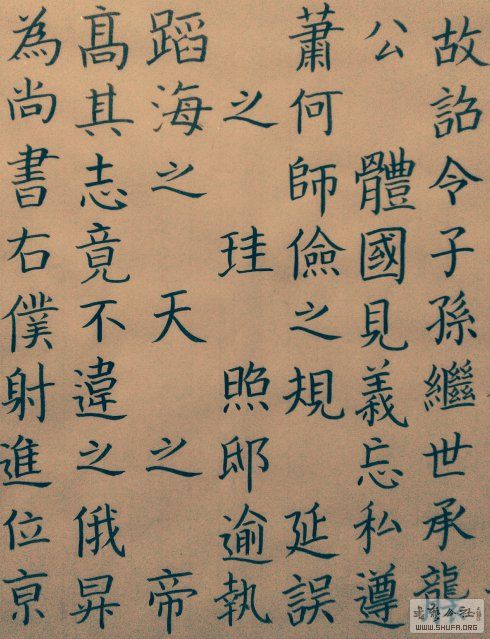 故詔令子孫繼世承
公體國見義忘私遵
蕭何師儉之規延誤
之珪照邸逾執
蹈海之天之帝
髙其志竟不違之俄昇
為尚書右僕射進位亰
WWW.SHUFA.ORG